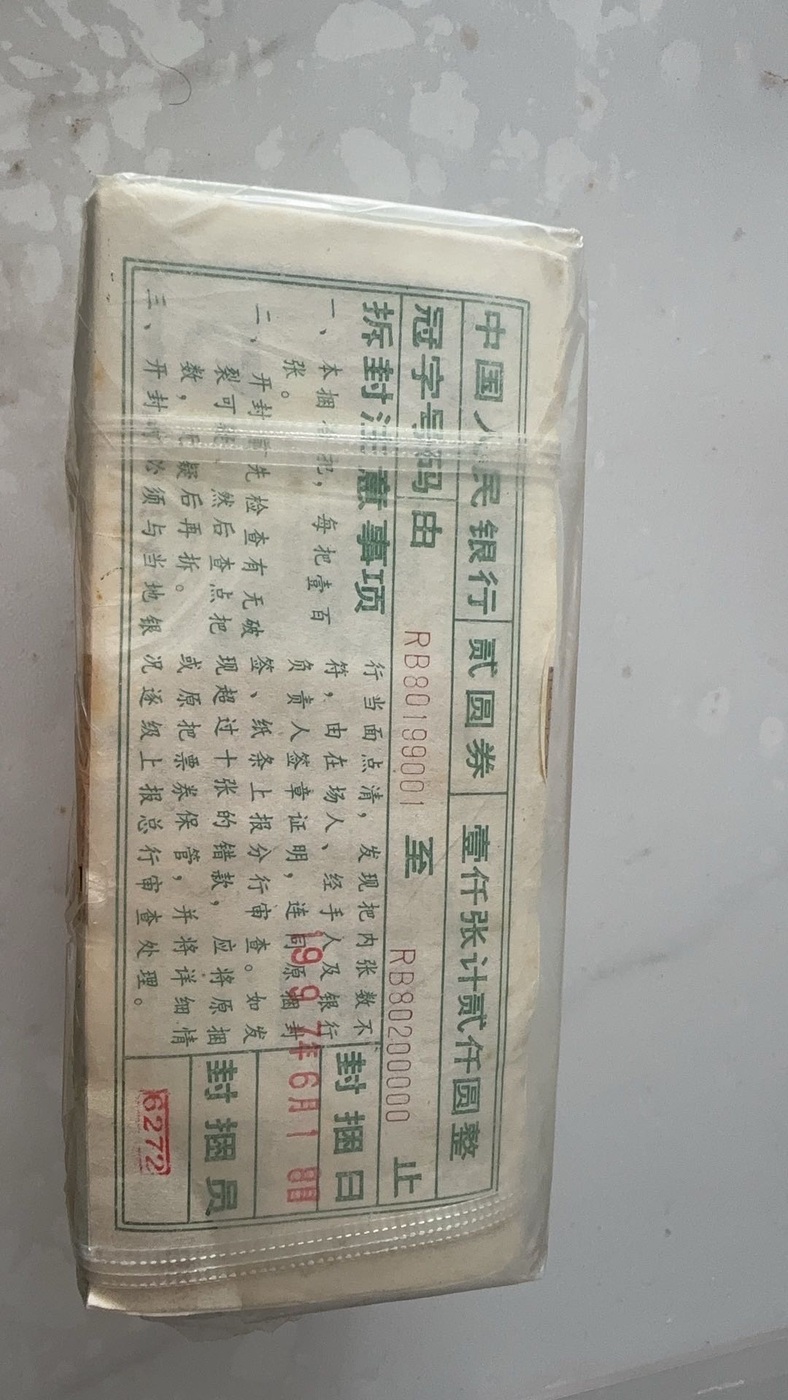 中国人民银行 贰圆券 壹仟张计贰仟圆整
冠字号码 由 RB80199001 至 RB80200000 止
拆封注意事项
一、本捆 把，每把壹百
张。
二、开封 先检查有无破
裂可 然后查点把
数， 疑后再拆。
三、开封 必须与当地银
行当面点清，发现把内张数不
符，由在场人、经手人及银行
负责人签章证明，连同原捆封
签、纸条上报分行审查。如发
现超过十张的错款，应将原捆
或原把票券保管，并将详细情
况逐级上报总行审查处理。
封捆日
1997年6月18日
封捆员
6272